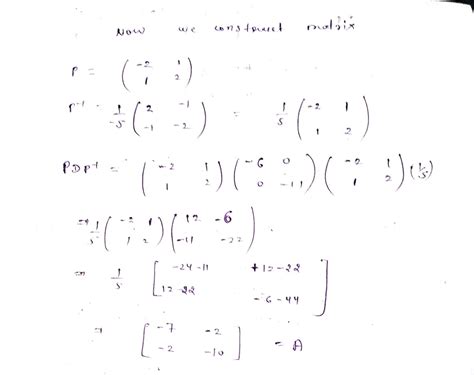 Now we construct matrix
P = ( -2 1 ; 1 2 )
P⁻¹ = 1/-5 ( 2 -1 ; -1 -2 ) = 1/5 ( -2 1 ; 1 2 )
PDP⁻¹ = ( -2 1 ; 1 2 ) ( -6 0 ; 0 -11 ) ( -2 1 ; 1 2 ) (1/5)
⇒ 1/5 ( -2 1 ; 1 2 ) ( 12 -6 ; -11 -22 )
⇒ 1/5 [ -24-11 +12-22 ; 12-22 -6-44 ]
⇒ [ -7 -2 ; -2 -10 ] = A